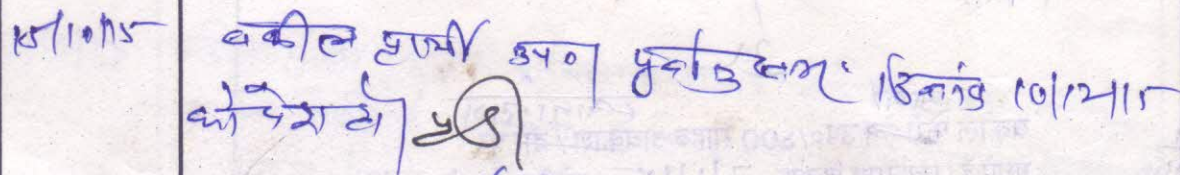 15/10/15 वकील प्रार्थी उप० पूर्वानुसार दिनांक 10/12/15
को पेश हो